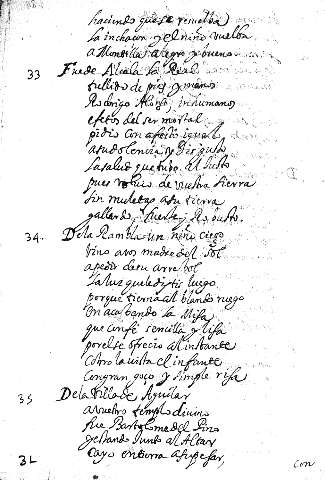 haciendo que se resuelba
la inchaçon y el niño vuelba
a Montilla alegre y bueno
33 Fue de Alcala la Real
tullido de pies y manos
Rodrigo Alonso, inhumanos
efetos del ser mortal
pidio con afeto igual
a su dolencia y disgusto
la salud que tubo al justo
pues volvio de vuestra tierra
sin muletas a su tierra
gallardo, fuerte y Robusto.
34. De la Rambla un niño ciego
vino a vos madre del Sol
a pedir de su arrebol
la luz que le distis luego
porque tierna al blando ruego
en acabando la Misa
que con fe sencilla y lisa
por el se ofrecio al instante
cobro la vista el infante
con gran goço y simple risa
35 De la Villa de Aguilar
a vuestro templo divino
fue Bartolome del Pino
y estando junto al Altar
cayo en tierra a su pesar,
con